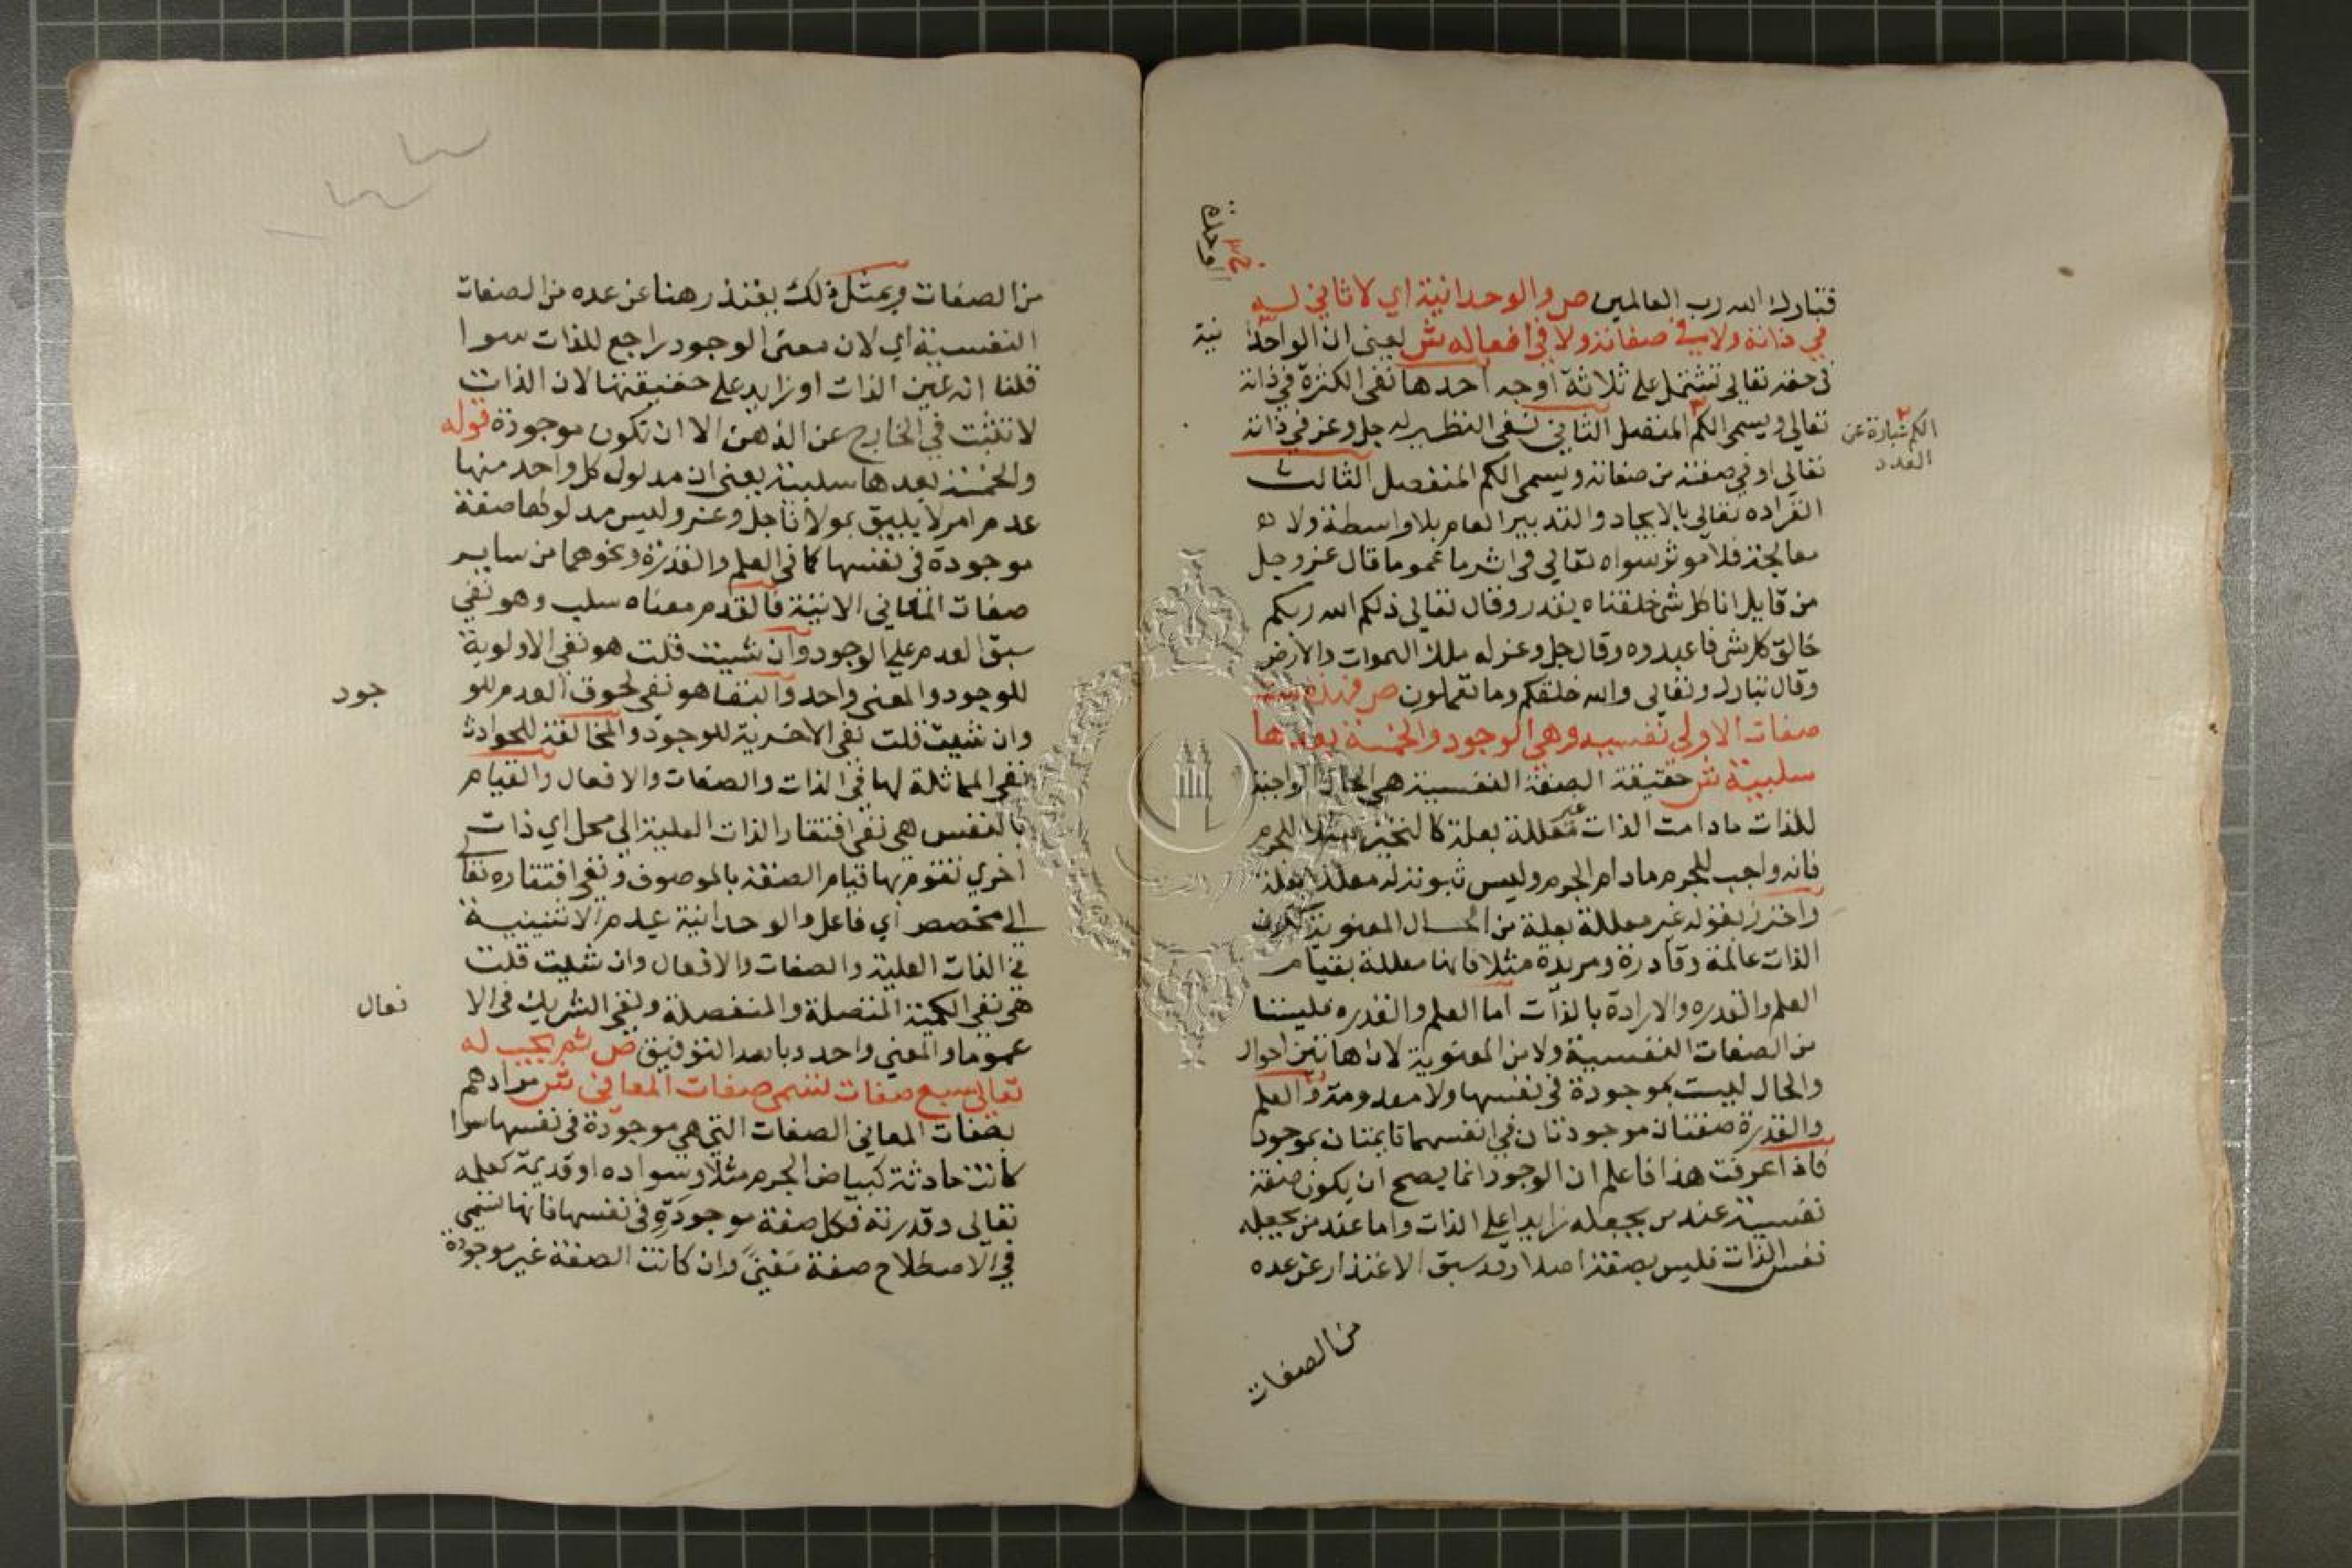 فتبارك الله رب العالمين ص والوحدانية اي لا ثاني له
في ذاته ولا في صفاته ولا في افعاله ش يعني ان الواحدا
نية
في حقه تعالى تشتمل على ثلاثة اوجه احدها نفي الكثرة في ذاته
تعالي ويسمى الكم المتصل الثاني نفي النظير له جل وعز في ذاته
الكم عبارة عن
العدد
تعالي او في صفة من صفاته ويسمى الكم المنفصل الثالث
انفراده تعالي بالايجاد والتدبير العام بلا واسطة ولا
معالجة فلا موثر سواه تعالي في اثر ما عموما قال عز وجل
من قايل انا كل شي خلقناه بقدر وقال تعالي ذلكم الله ربكم
خالق كل شي فاعبدوه وقال جل وعز له ملك السموات والارض
وقال تبارك وتعالي والله خلقكم وما تعملون ص فهذه ست
صفات الاولي نفسيه وهي الوجود والخمسة بعدها
سلبية ش حقيقة الصفة النفسية هي الحال الواجبة
للذات ما دامت الذات غير معللة بعلة كالتحيز مثلا للجرم
فانه واجب للجرم مادام الجرم وليس ثبوته له معللا بعلة
واحترز بقوله غير معللة بعلة من الحال المعنوية ككون
الذات عالمة وقادرة ومريدة مثلا فانها معللة بقيام
العلم والقدره والارادة بالذات اما العلم والقدره فليستا
من الصفات النفسية ولا من المعنوية لان هاتين احوال
والحال ليست بموجودة في نفسها ولا معدومة والعلم
والقدرة صفتان موجودتان في انفسهما قايمتان بموجود
فاذا عرفت هذا فاعلم ان الوجود انما يصح ان يكون صفة
نفسية عند من يجعله زايدا على الذات واما عند من يجعله
نفس الذات فليس بصفة اصلا وقد سبق الاعتذار عن عده
من الصفات
من الصفات وبمثل ذلك يعتذر هنا عن عده من الصفات
النفسية اي لان معنى الوجود راجع للذات سوا
قلنا انه عين الذات او زايد على حقيقتها لان الذات
لا تثبت في الخارج عن الذهن الا ان تكون موجودة قوله
والخمسة بعدها سلبية يعني ان مدلول كل واحد منها
عدم امر لا يليق بمولانا جل وعز وليس مدلولها صفة
موجودة في نفسها كما في العلم والقدرة ونحوهما من ساير
صفات المعاني الاتية فالقدم معناه سلب وهو نفي
سبق العدم على الوجود وان شيت قلت هو نفي الاولوية
للوجود والمعنى واحد والبقا هو نفي لحوق العدم للو
جود
وان شيت قلت نفي الاخرية للوجود والمخالفة للحوادث
نفي المماثلة لها في الذات والصفات والافعال والقيام
بالنفس هي نفي افتقار الذات العلية الى محل اي ذات
اخري تقوم بها قيام الصفة بالموصوف ونفي افتقاره تعا
لي
الى مخصص اي فاعل والوحدانية عدم الاثنينية
في الذات العلية والصفات والافعال وان شيت قلت
هي نفي الكمية المتصلة والمنفصلة ونفي الشريك في الا
فعال
عموما والمعني واحد وبالله التوفيق ص ثم يجب له
تعالي سبع صفات تسمى صفات المعاني ش مرادهم
بصفات المعاني الصفات التي هي موجودة في نفسها سوا
كانت حادثة كبياض الجرم مثلا وسواده او قديمة كعلمه
تعالى وقدرته فكل صفة موجودة في نفسها فانها تسمي
في الاصطلاح صفة معنى وان كانت الصفة غير موجودة